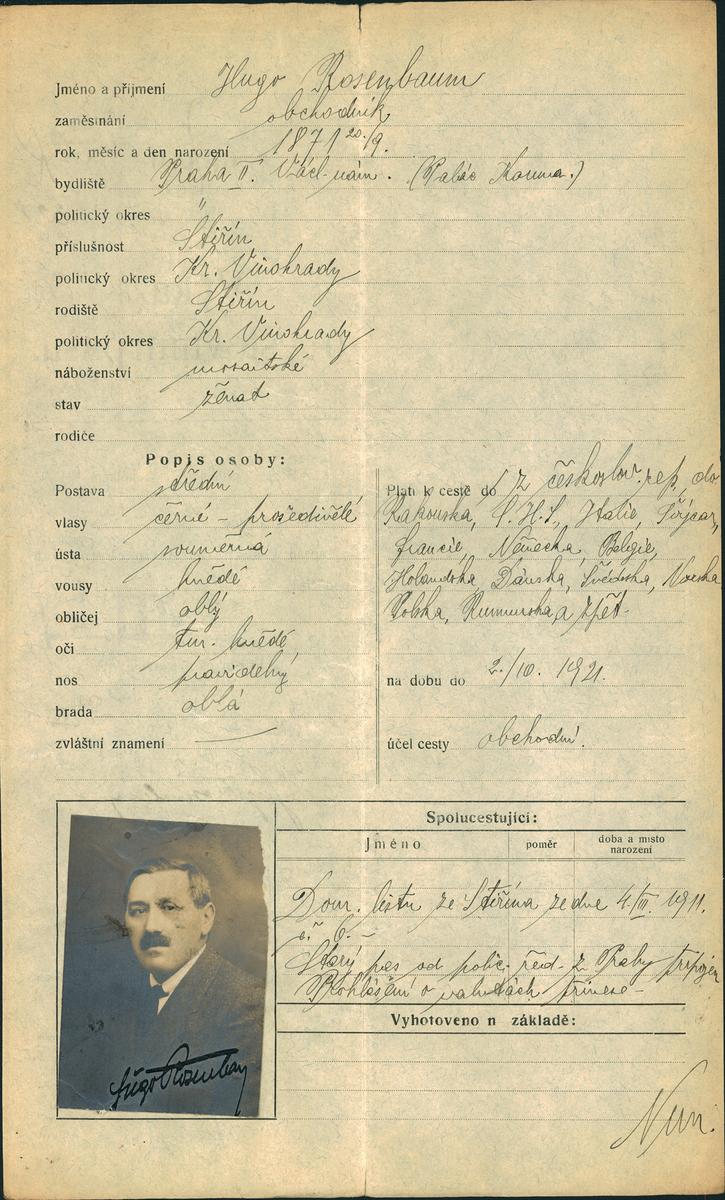 Jméno a příjmení Hugo Rosenbaum
zaměstnání obchodník
rok, měsíc a den narození 1871 20./9.
bydliště Praha II. Václ. nám. (Palác Koruna.)
politický okres "
příslušnost Štiřín
politický okres Kr. Vinohrady
rodiště Štiřín
politický okres Kr. Vinohrady
náboženství mosaitské
stav ženat
rodiče
Popis osoby:
Postava střední
vlasy černé - prošedivělé
ústa souměrná
vousy hnědé
obličej oblý
oči tm. hnědé,
nos pravidelný
brada oblá
zvláštní znamení —
Platí k cestě do z českoslov. rep. do
Rakouska, S.H.S., Italie, Švýcar,
Francie, Německa, Belgie,
Holandska, Dánska, Švédska, Norska
Polska, Rumunska, a zpět.
na dobu do 2./10. 1921.
účel cesty obchodní.
Spolucestující:
Jméno poměr doba a místo narození
Dom. listu ze Štiřína ze dne 4./III. 1911.
č. 6. -
Starý pas od polic. řed. z Prahy připojen
Prohlášení o valutách přinese -
Vyhotoveno n základě:
Hugo Rosenbaum